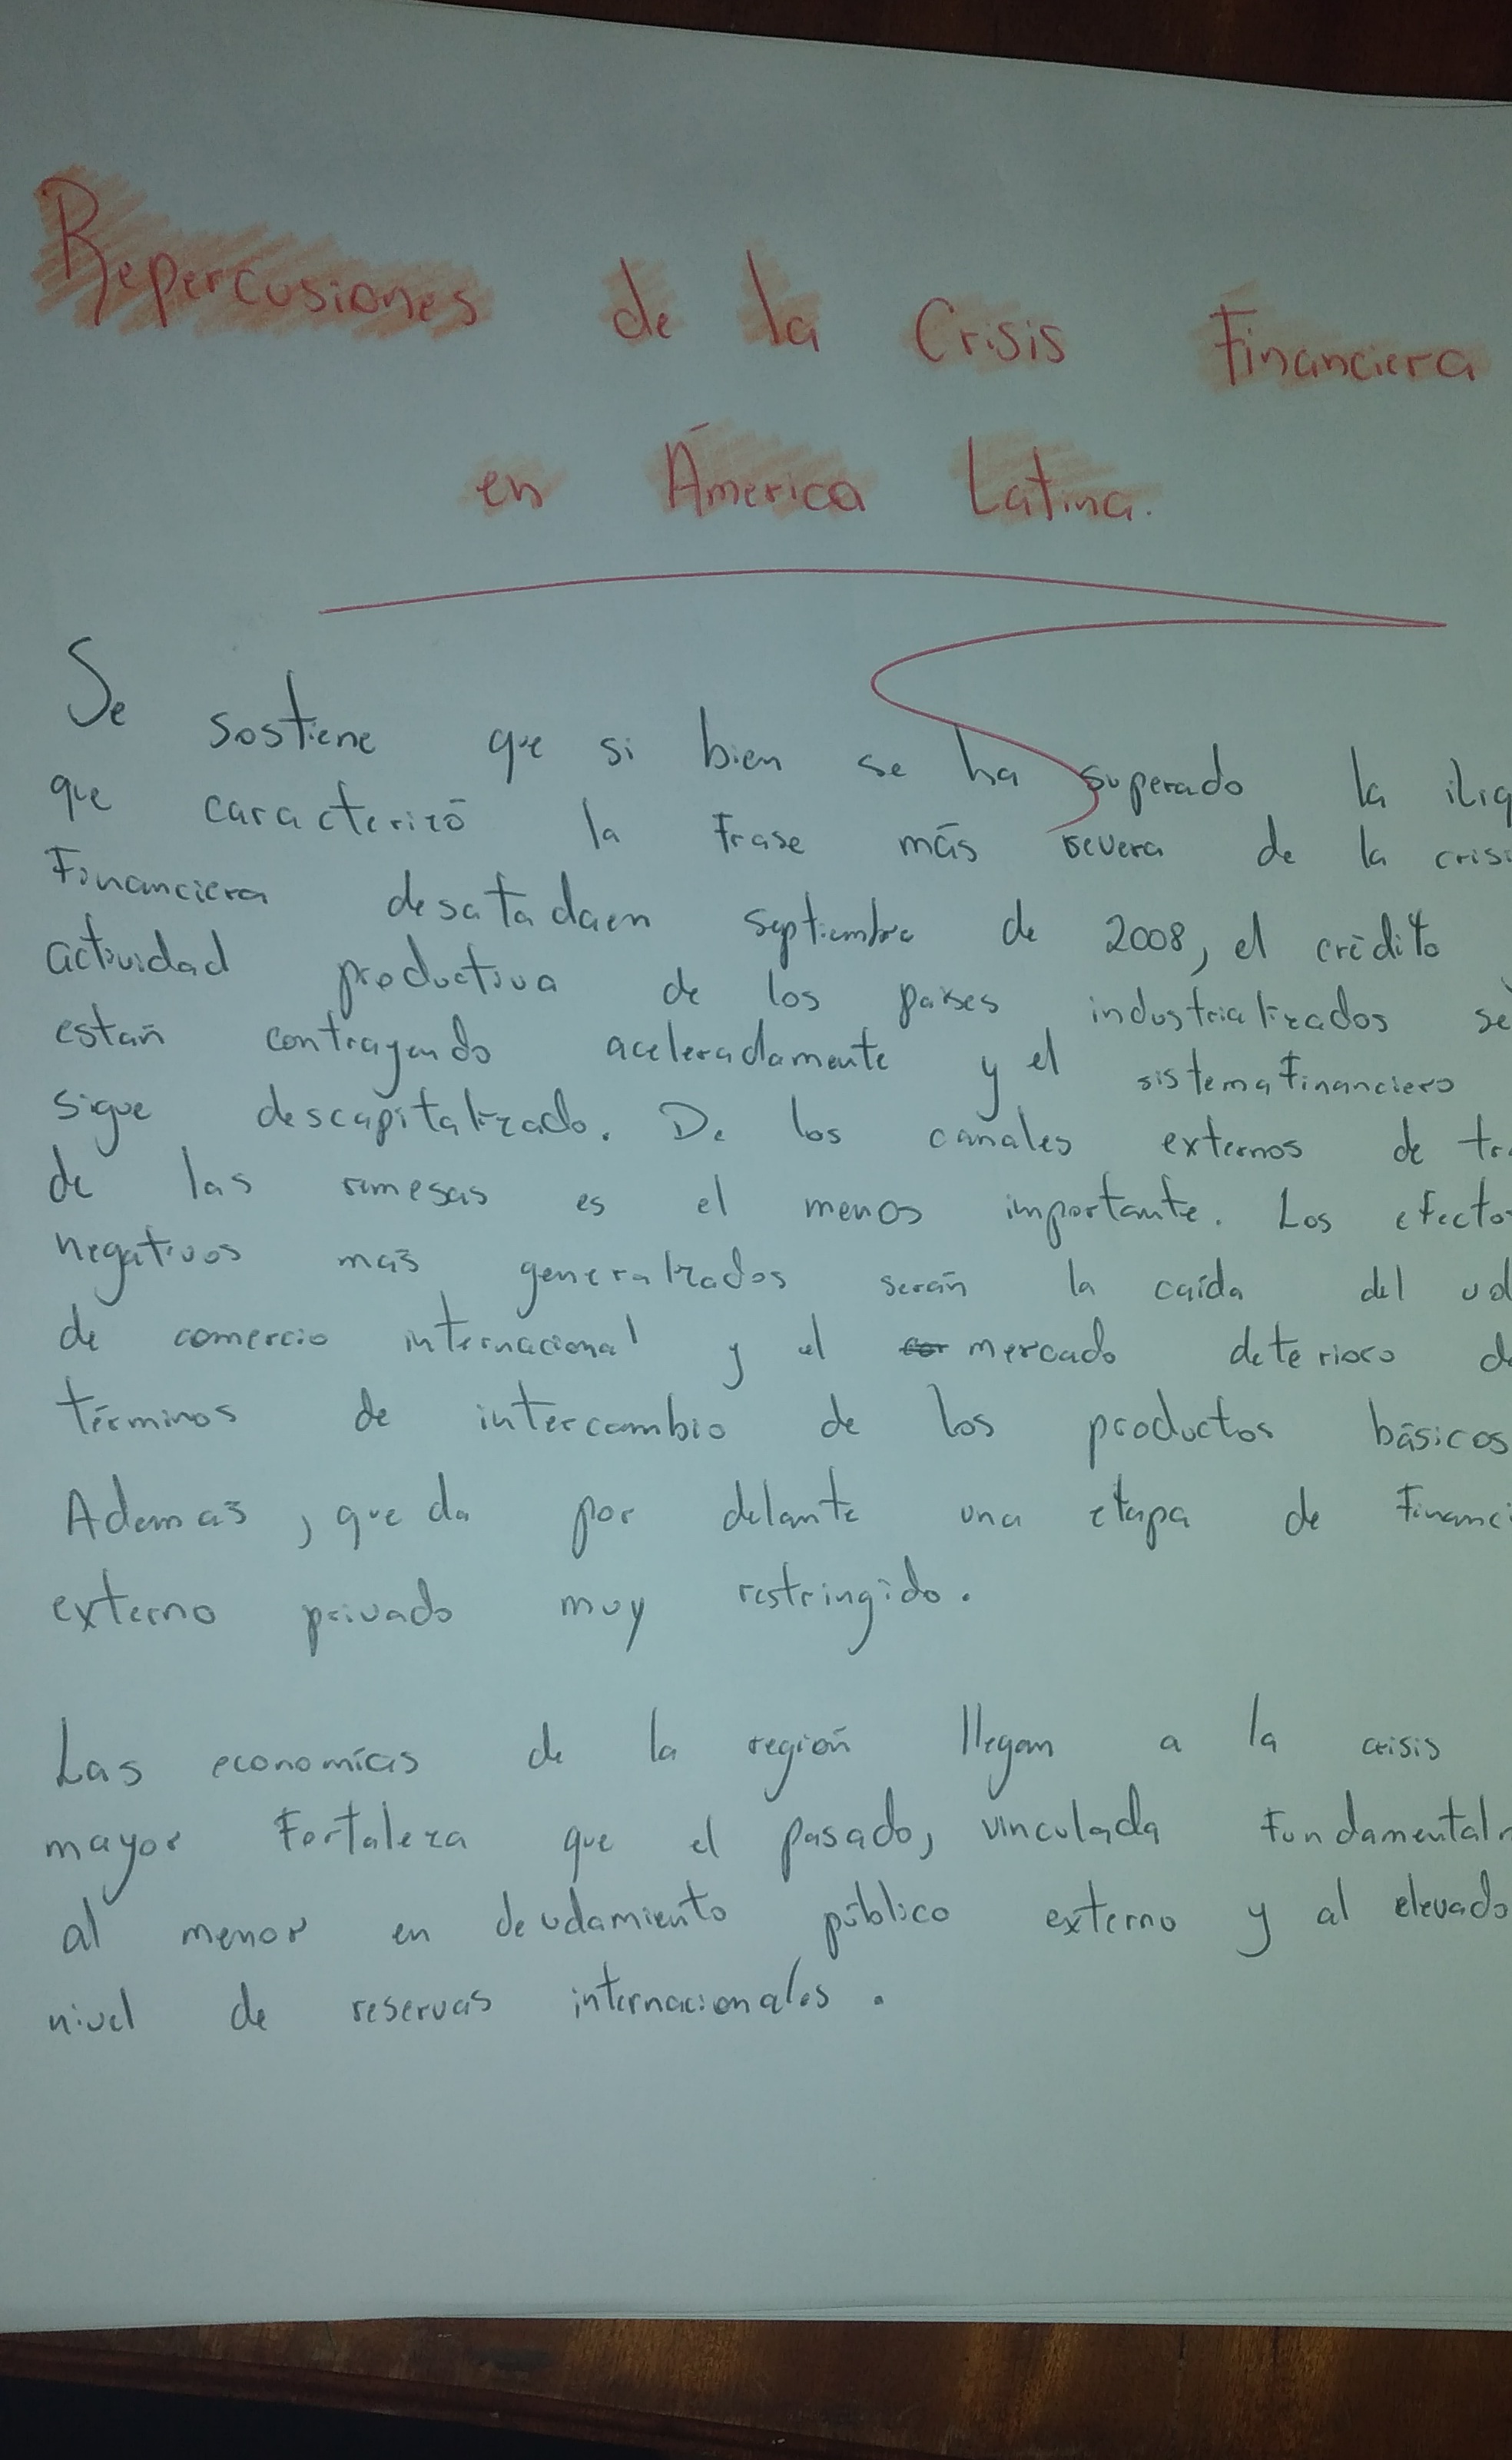 Repercusiones de la Crisis Financiera
en América Latina.
Se sostiene que si bien se ha superado la iliq
que caracterizó la Frase más severa de la crisi
Financiera desatadaen septiembre de 2008, el crédito
actividad productiva de los países industrializados se
están contrayendo aceleradamente y el sistema Financiero
sigue descapitalizado. De los canales externos de tra
de las remesas es el menos importante. Los efecto
negativos más generalizados serán la caída del vol
de comercio internacional y el mercado deterioro de
términos de intercambio de los productos básicos
Además, queda por delante una etapa de Financi
externo privado muy restringido.
Las economías de la región llegan a la crisis
mayor Fortaleza que el pasado, vinculada Fundamental
al menor en deudamiento público externo y al elevado
nivel de reservas internacionales.